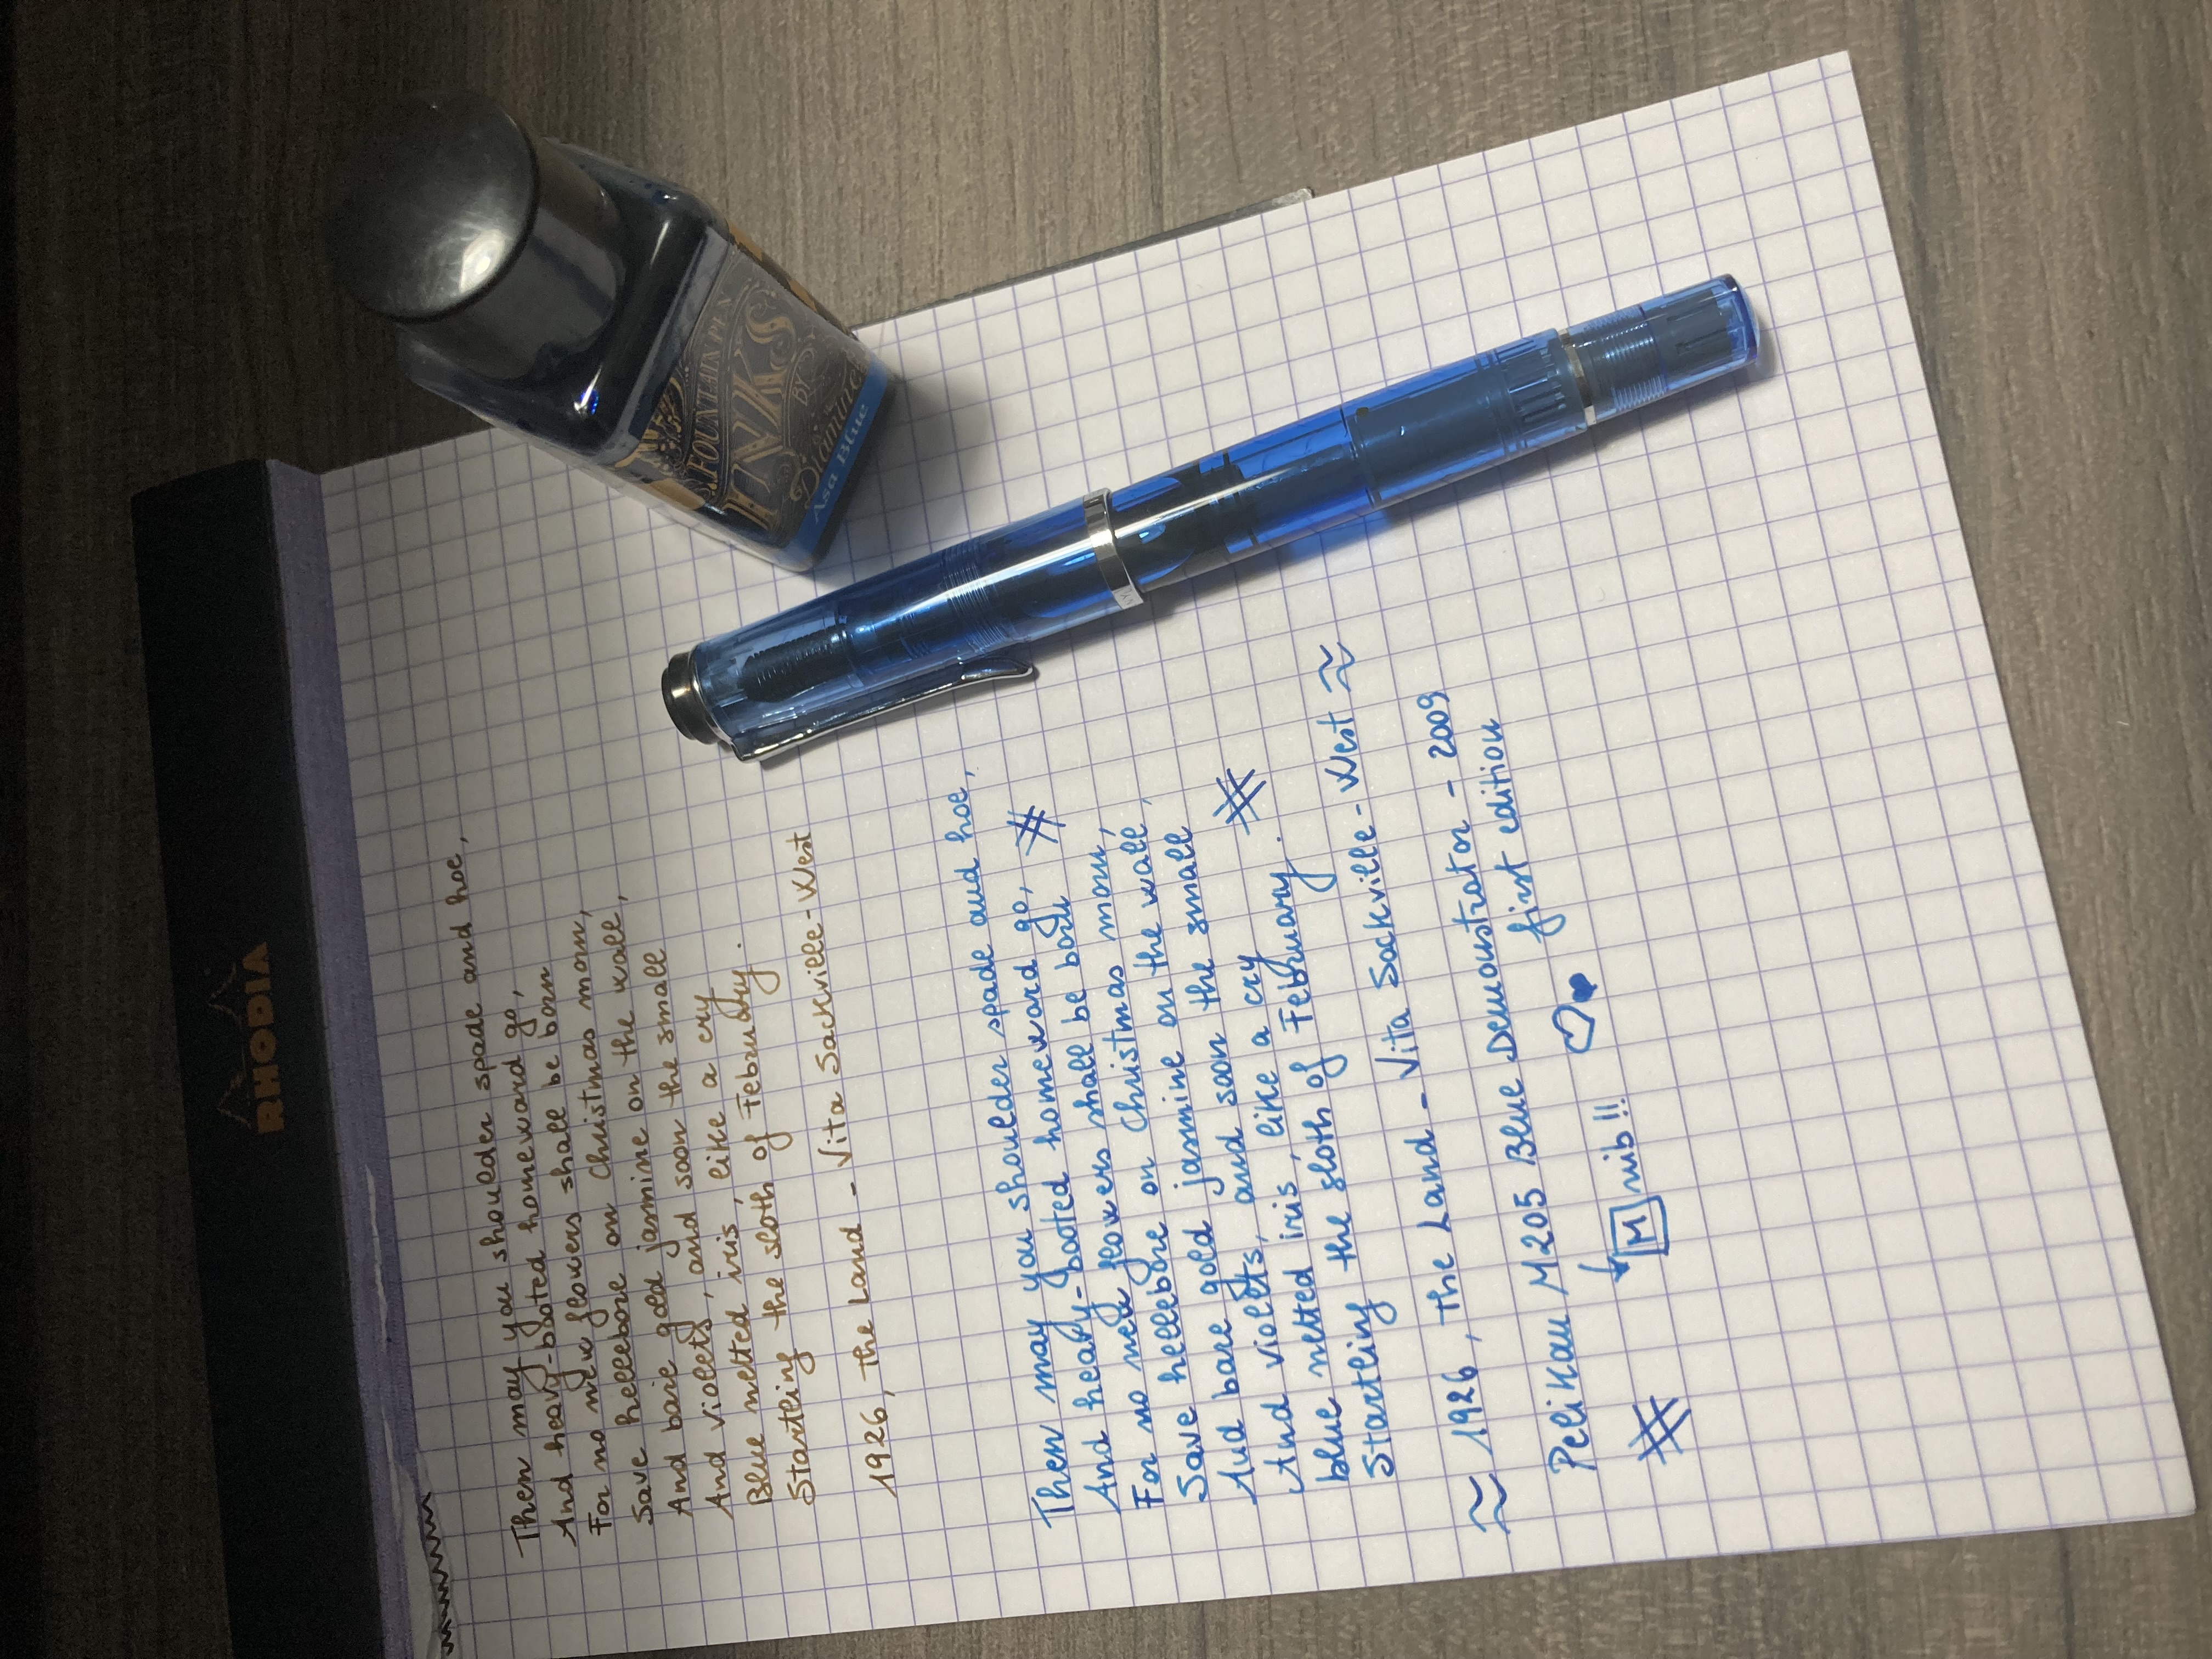 RHODIA
Then may you shoulder spade and hoe,
And heavy-booted homeward go,
For no new flowers shall be born
Save hellebore on Christmas morn,
And bare gold jasmine on the wall,
And violets, and soon the small
Blue netted iris, like a cry
Startling the sloth of February.
1926, The Land - Vita Sackville-West
Then may you shoulder spade and hoe,
And heavy-booted homeward go,
For no new flowers shall be born
Save hellebore on Christmas morn,
And bare gold jasmine on the wall,
And violets, and soon the small
blue netted iris, like a cry
Startling the sloth of February.
≈ 1926, The Land - Vita Sackville-West ≈
Pelikan M205 Blue Demonstrator - 2009
first edition
M nib!!
FOUNTAIN PEN
INKS
BY
Diamine
Asa Blue